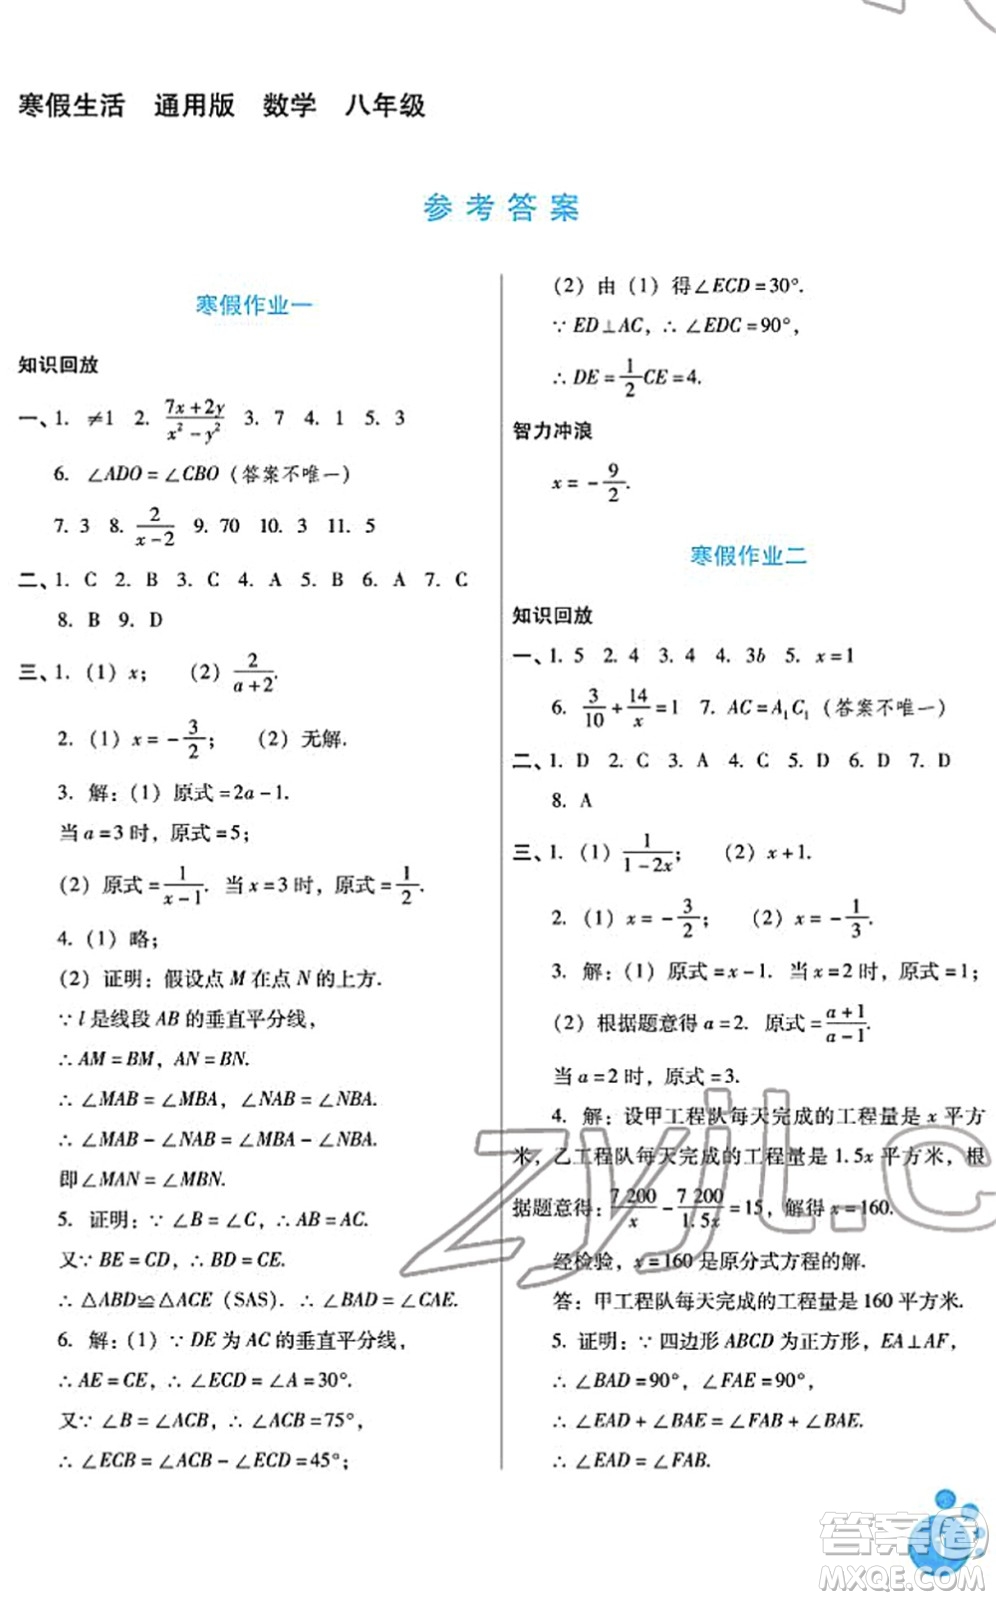 寒假生活　通用版　数学　八年级
参考答案
寒假作业一
知识回放
一、1. ≠1 2. (7x+2y)/(x²−y²) 3. 7 4. 1 5. 3
6. ∠ADO=∠CBO（答案不唯一）
7. 3 8. 2/(x−2) 9. 70 10. 3 11. 5
二、1. C 2. B 3. C 4. A 5. B 6. A 7. C
8. B 9. D
三、1.（1）x；（2）2/(a+2).
2.（1）x=−3/2；（2）无解.
3. 解：（1）原式=2a−1.
当a=3时，原式=5；
（2）原式=1/(x−1). 当x=3时，原式=1/2.
4.（1）略；
（2）证明：假设点M在点N的上方.
∵l是线段AB的垂直平分线，
∴AM=BM，AN=BN.
∴∠MAB=∠MBA，∠NAB=∠NBA.
∴∠MAB−∠NAB=∠MBA−∠NBA.
即∠MAN=∠MBN.
5. 证明：∵∠B=∠C，∴AB=AC.
又∵BE=CD，∴BD=CE.
∴△ABD≌△ACE（SAS）. ∴∠BAD=∠CAE.
6. 解：（1）∵DE为AC的垂直平分线，
∴AE=CE，∴∠ECD=∠A=30°.
又∵∠B=∠ACB，∴∠ACB=75°，
∴∠ECB=∠ACB−∠ECD=45°；
（2）由（1）得∠ECD=30°.
∵ED⊥AC，∴∠EDC=90°，
∴DE=1/2CE=4.
智力冲浪
x=−9/2.
寒假作业二
知识回放
一、1. 5 2. 4 3. 4 4. 3b 5. x=1
6. 3/10+14/x=1 7. AC=A₁C₁（答案不唯一）
二、1. D 2. C 3. A 4. C 5. D 6. D 7. D
8. A
三、1.（1）1/(1−2x)；（2）x+1.
2.（1）x=−3/2；（2）x=−1/3.
3. 解：（1）原式=x−1. 当x=2时，原式=1；
（2）根据题意得a=2. 原式=(a+1)/(a−1).
当a=2时，原式=3.
4. 解：设甲工程队每天完成的工程量是x平方
米，乙工程队每天完成的工程量是1.5x平方米，根
据题意得：7 200/x−7 200/1.5x=15，解得x=160.
经检验，x=160是原分式方程的解.
答：甲工程队每天完成的工程量是160平方米.
5. 证明：∵四边形ABCD为正方形，EA⊥AF，
∴∠BAD=90°，∠FAE=90°，
∴∠EAD+∠BAE=∠FAB+∠BAE.
∴∠EAD=∠FAB.
zyjl.c
答案圈
MXQE.COM